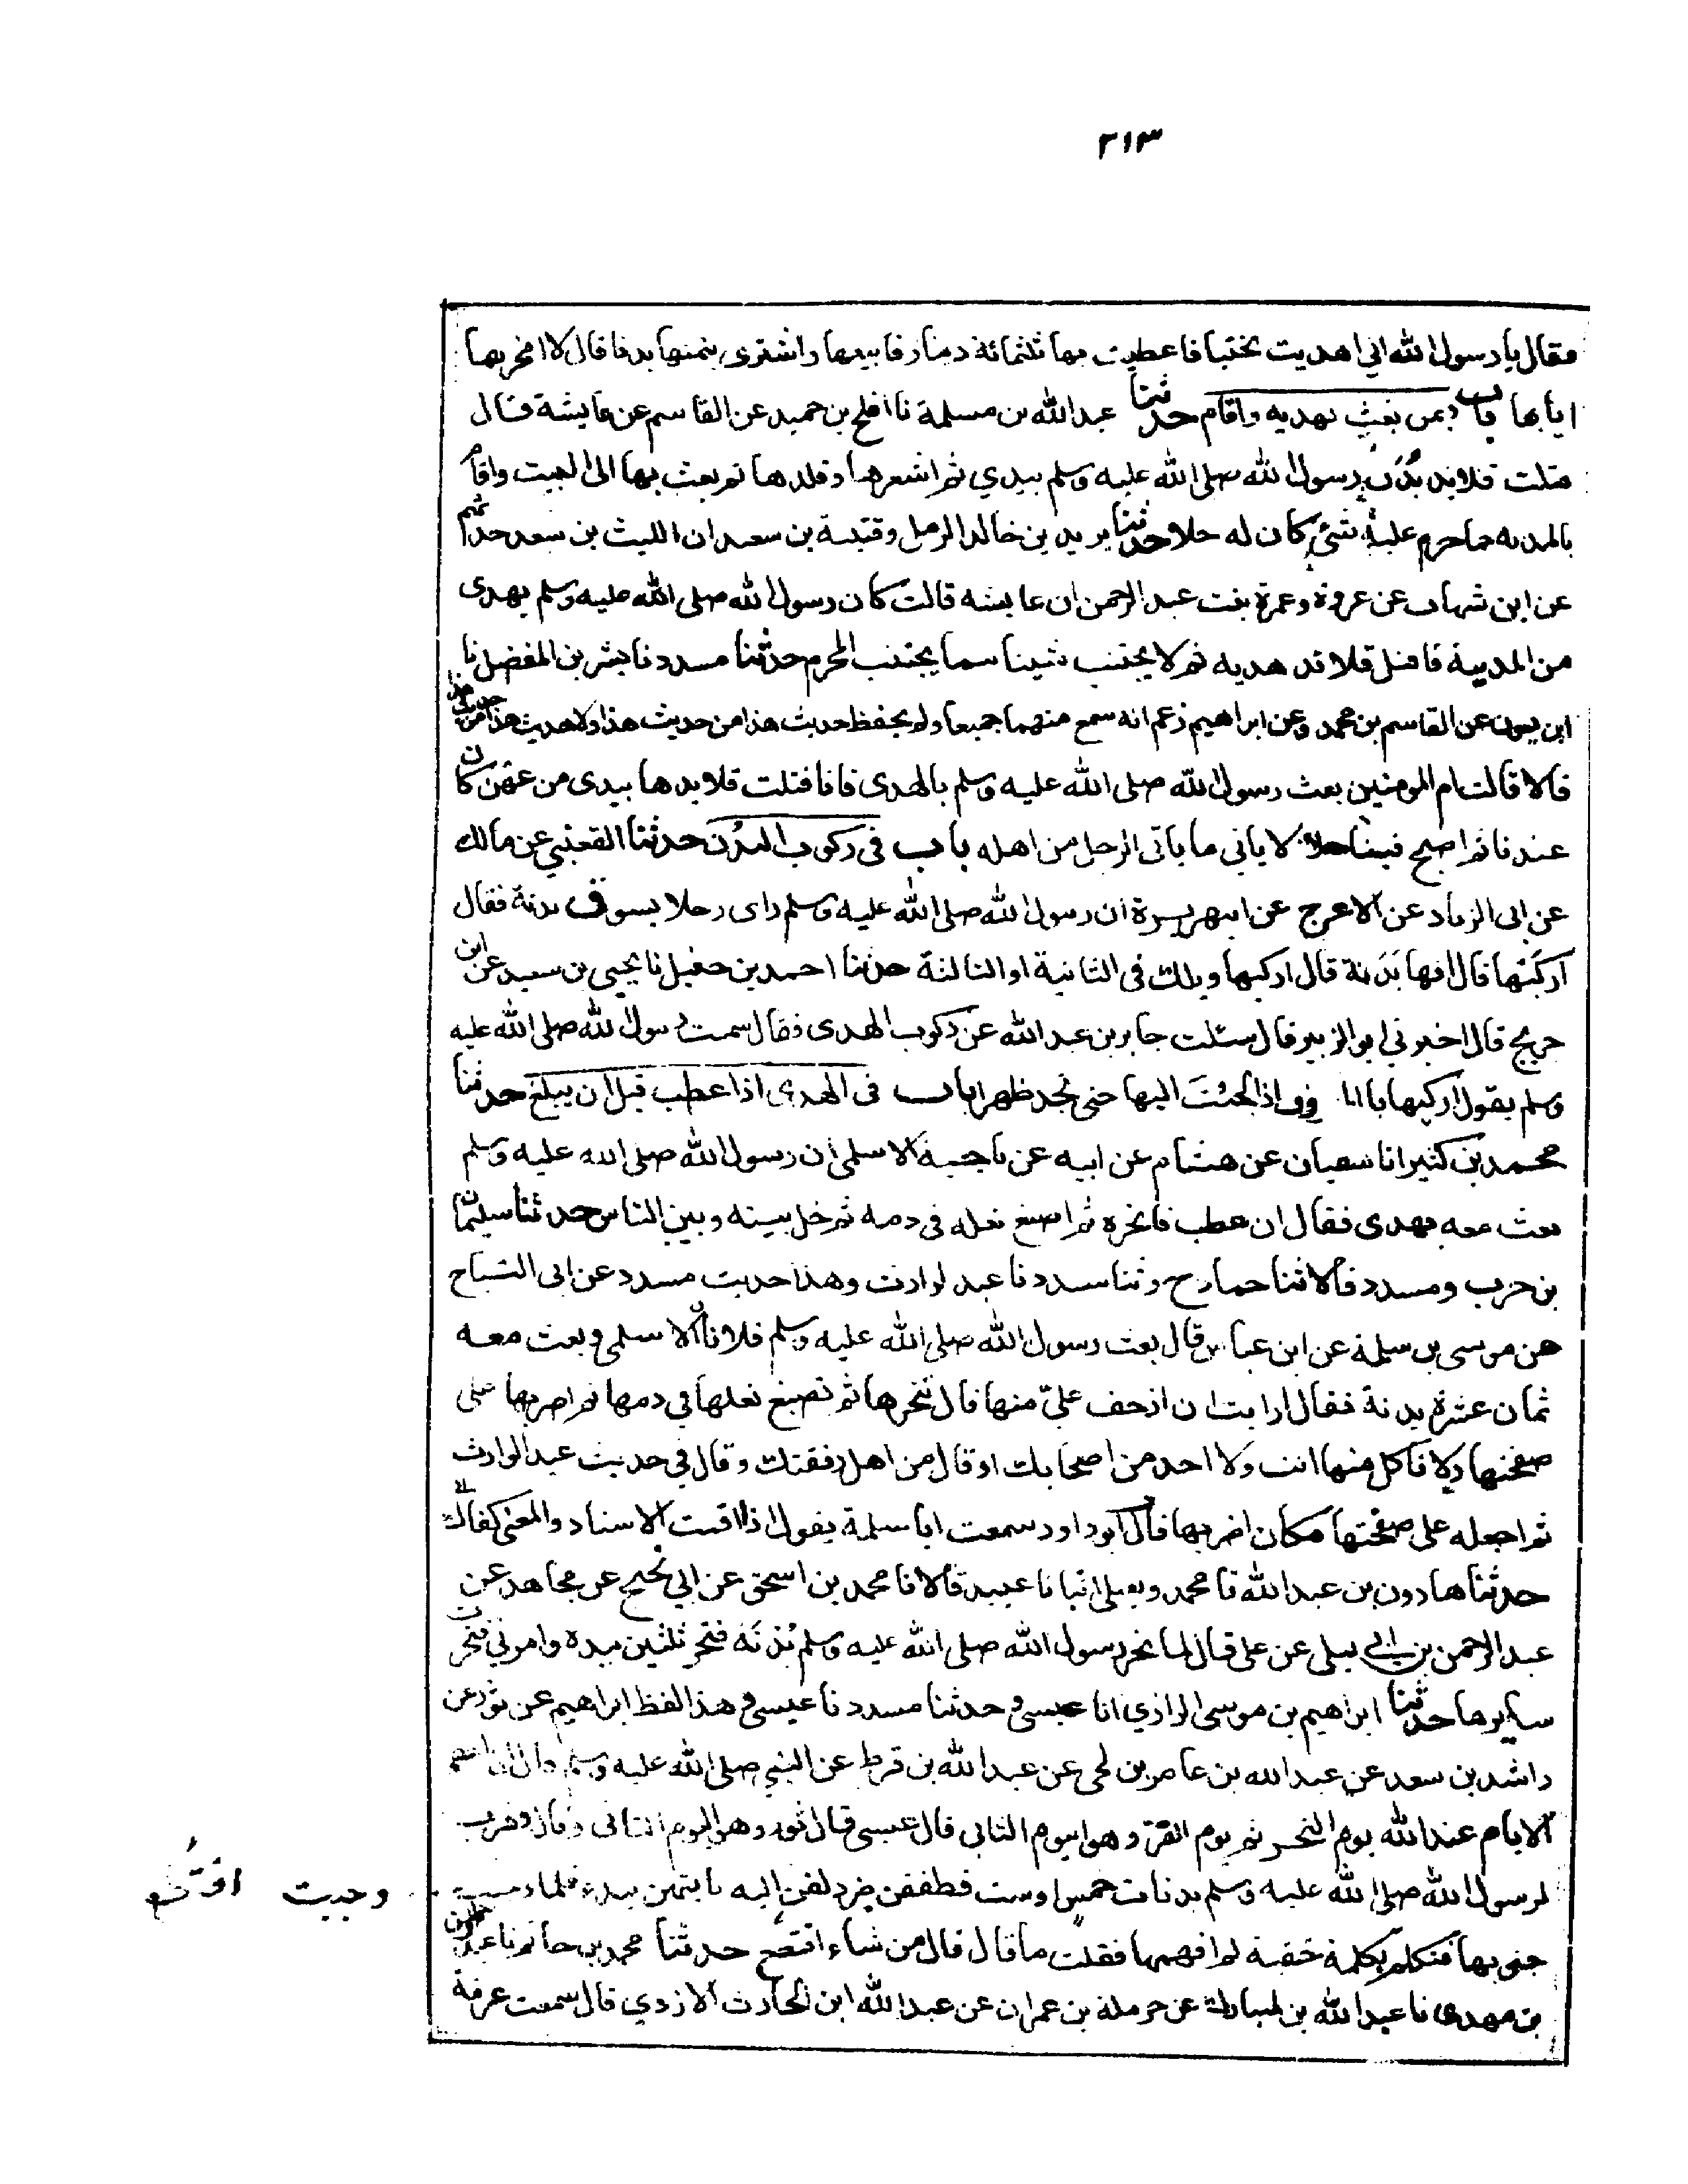 ٢١٣
فقال يا رسول الله اني اهديت بختيا فاعطيت بها ثلثمائة دينار فابيعها واشترى بثمنها بدنا قال لا انحرها
اياها باب من بعث بهديه واقام حدثنا عبدالله بن مسلمة نا افلح بن حميد عن القاسم عن عايشة قال
فتلت قلايد بُدن رسول الله صلى الله عليه وسلم بيدي ثم اشعرها وقلدها ثم بعث بها الى البيت واقام
بالمدينه فما حرم عليه شئ كان له حلا حدثنا يزيد بن خالد الرملى وقتيبة بن سعيد ان الليث بن سعد حدثهم
عن ابن شهاب عن عروة وعمرة بنت عبد الرحمن ان عايشه قالت كان رسول الله صلى الله عليه وسلم يهدى
من المدينة فافتل قلائد هديه ثم لا يجتنب شيئا مما يجتنب المحرم حدثنا مسدد نا بشر بن المفضل نا
ابن عون عن القاسم بن محمد وعن ابراهيم زعم انه سمع منهما جميعا ولم يحفظ حديث هذا من حديث هذا ولا حديث هذا من حديث هذا
قالا قالت ام المومنين بعث رسول الله صلى الله عليه وسلم بالهدى فانا فتلت قلايدها بيدى من عهن كان
عندنا ثم اصبح فينا حلالا ياتي ما ياتى الرجل من اهله باب فى ركوب البُدن حدثنا القعنبي عن مالك
عن ابى الزناد عن الاعرج عن ابي هريرة ان رسول الله صلى الله عليه وسلم راى رجلا يسوق بدنة فقال
اركبها قال انها بَدَنة قال اركبها ويلك فى الثانية او الثالثة حدثنا احمد بن حنبل نا يحيى بن سعيد عن ابن
جريج قال اخبرني ابو الزبير قال سئلت جابر بن عبد الله عن ركوب الهدى فقال سمعت رسول الله صلى الله عليه
وسلم يقول اركبها با اذا اُلجئتَ اليها حتى تجد ظهرا باب فى الهدى اذا عطب قبل ان يبلغ حدثنا
محمد بن كثير انا سفيان عن هشام عن ابيه عن ناجية الاسلمى ان رسول الله صلى الله عليه وسلم
بعث معه بهدى فقال ان عطب فانحره ثم اصبغ نعله فى دمه ثم خل بينه وبين الناس حدثنا سليمان
بن حرب ومسدد قالا ثنا حماد ح وثنا مسدد نا عبد الوارث وهذا حديث مسدد عن ابى التياح
عن موسى بن سلمة عن ابن عباس قال بعث رسول الله صلى الله عليه وسلم فلانا الاسلمى وبعث معه
ثمان عشرة بدنة فقال ارايت ان ازحف عليّ منها قال تنحرها ثم تصبغ نعلها في دمها ثم اضربها على
صفحتها ولا تاكل منها انت ولا احد من اصحابك او قال من اهل رفقتك وقال في حديث عبد الوارث
ثم اجعله على صفحتها مكان اضربها قال ابو داود سمعت ابا سلمة يقول اذا اقمت الاسناد والمعنى كفاك
حدثنا هارون بن عبد الله نا محمد ويعلى ابنا عبيد قالا نا محمد بن اسحق عن ابي نجيح عن مجاهد عن
عبد الرحمن بن ابي ليلى عن على قال لما نحر رسول الله صلى الله عليه وسلم بُدْنَهُ فنحر ثلثين بيده وامرني فنحرت
سايرها حدثنا ابراهيم بن موسى الرازي انا عيسى وحدثنا مسدد نا عيسى وهذا لفظ ابراهيم عن ثور عن
راشد بن سعد عن عبد الله بن عامر بن لحى عن عبد الله بن قرط عن النبي صلى الله عليه وسلم قال ان اعظم
الايام عند الله يوم النحر ثم يوم القرّ وهو اليوم الثانى قال عيسى قال ثور وهو اليوم الثانى وقال وقرب
لرسول الله صلى الله عليه وسلم بدنات خمس او ست فطفقن يزدلفن اليه بايتهن يبدء فلما وجبت
جنوبها فتكلم بكلمة خفية لم افهمها فقلت ما قال قال من شاء اقتطع حدثنا محمد بن حاتم نا عبد الرحمن
بن مهدى نا عبد الله بن المبارك عن حرملة بن عمران عن عبد الله ابن الحارث الازدي قال سمعت عرفة
وجبت